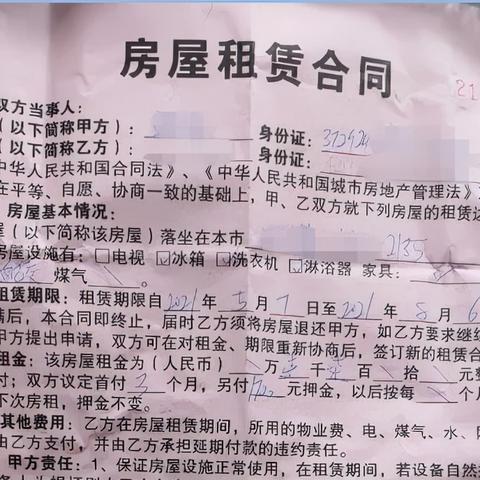 房屋租赁合同
21
双方当事人：
（以下简称甲方）： 身份证：372924
（以下简称乙方）： 身份证：
中华人民共和国合同法》、《中华人民共和国城市房地产管理法》
在平等、自愿、协商一致的基础上，甲、乙双方就下列房屋的租赁达
房屋基本情况：
（以下简称该房屋）落坐在本市 2135
房屋设施有：□电视 ☑冰箱 ☑洗衣机 ☑淋浴器 家具：
煤气 。
租赁期限：租赁期限自2021年5月7日至2021年8月6
满后，本合同即终止，届时乙方须将房屋退还甲方，如乙方要求继续
甲方提出申请，双方可在对租金、期限重新协商后，签订新的租赁合
租金：该房屋租金为（人民币） 万 千 百 拾 元整
付；双方议定首付3个月，另付1700元押金，以后按每 个月
下次房租，押金不变。
其他费用：乙方在房屋租赁期间，所用的物业费、电、煤气、水、
由乙方支付，并由乙方承担延期付款的违约责任。
甲方责任：1、保证房屋设施正常使用，在租赁期间，若设备自然